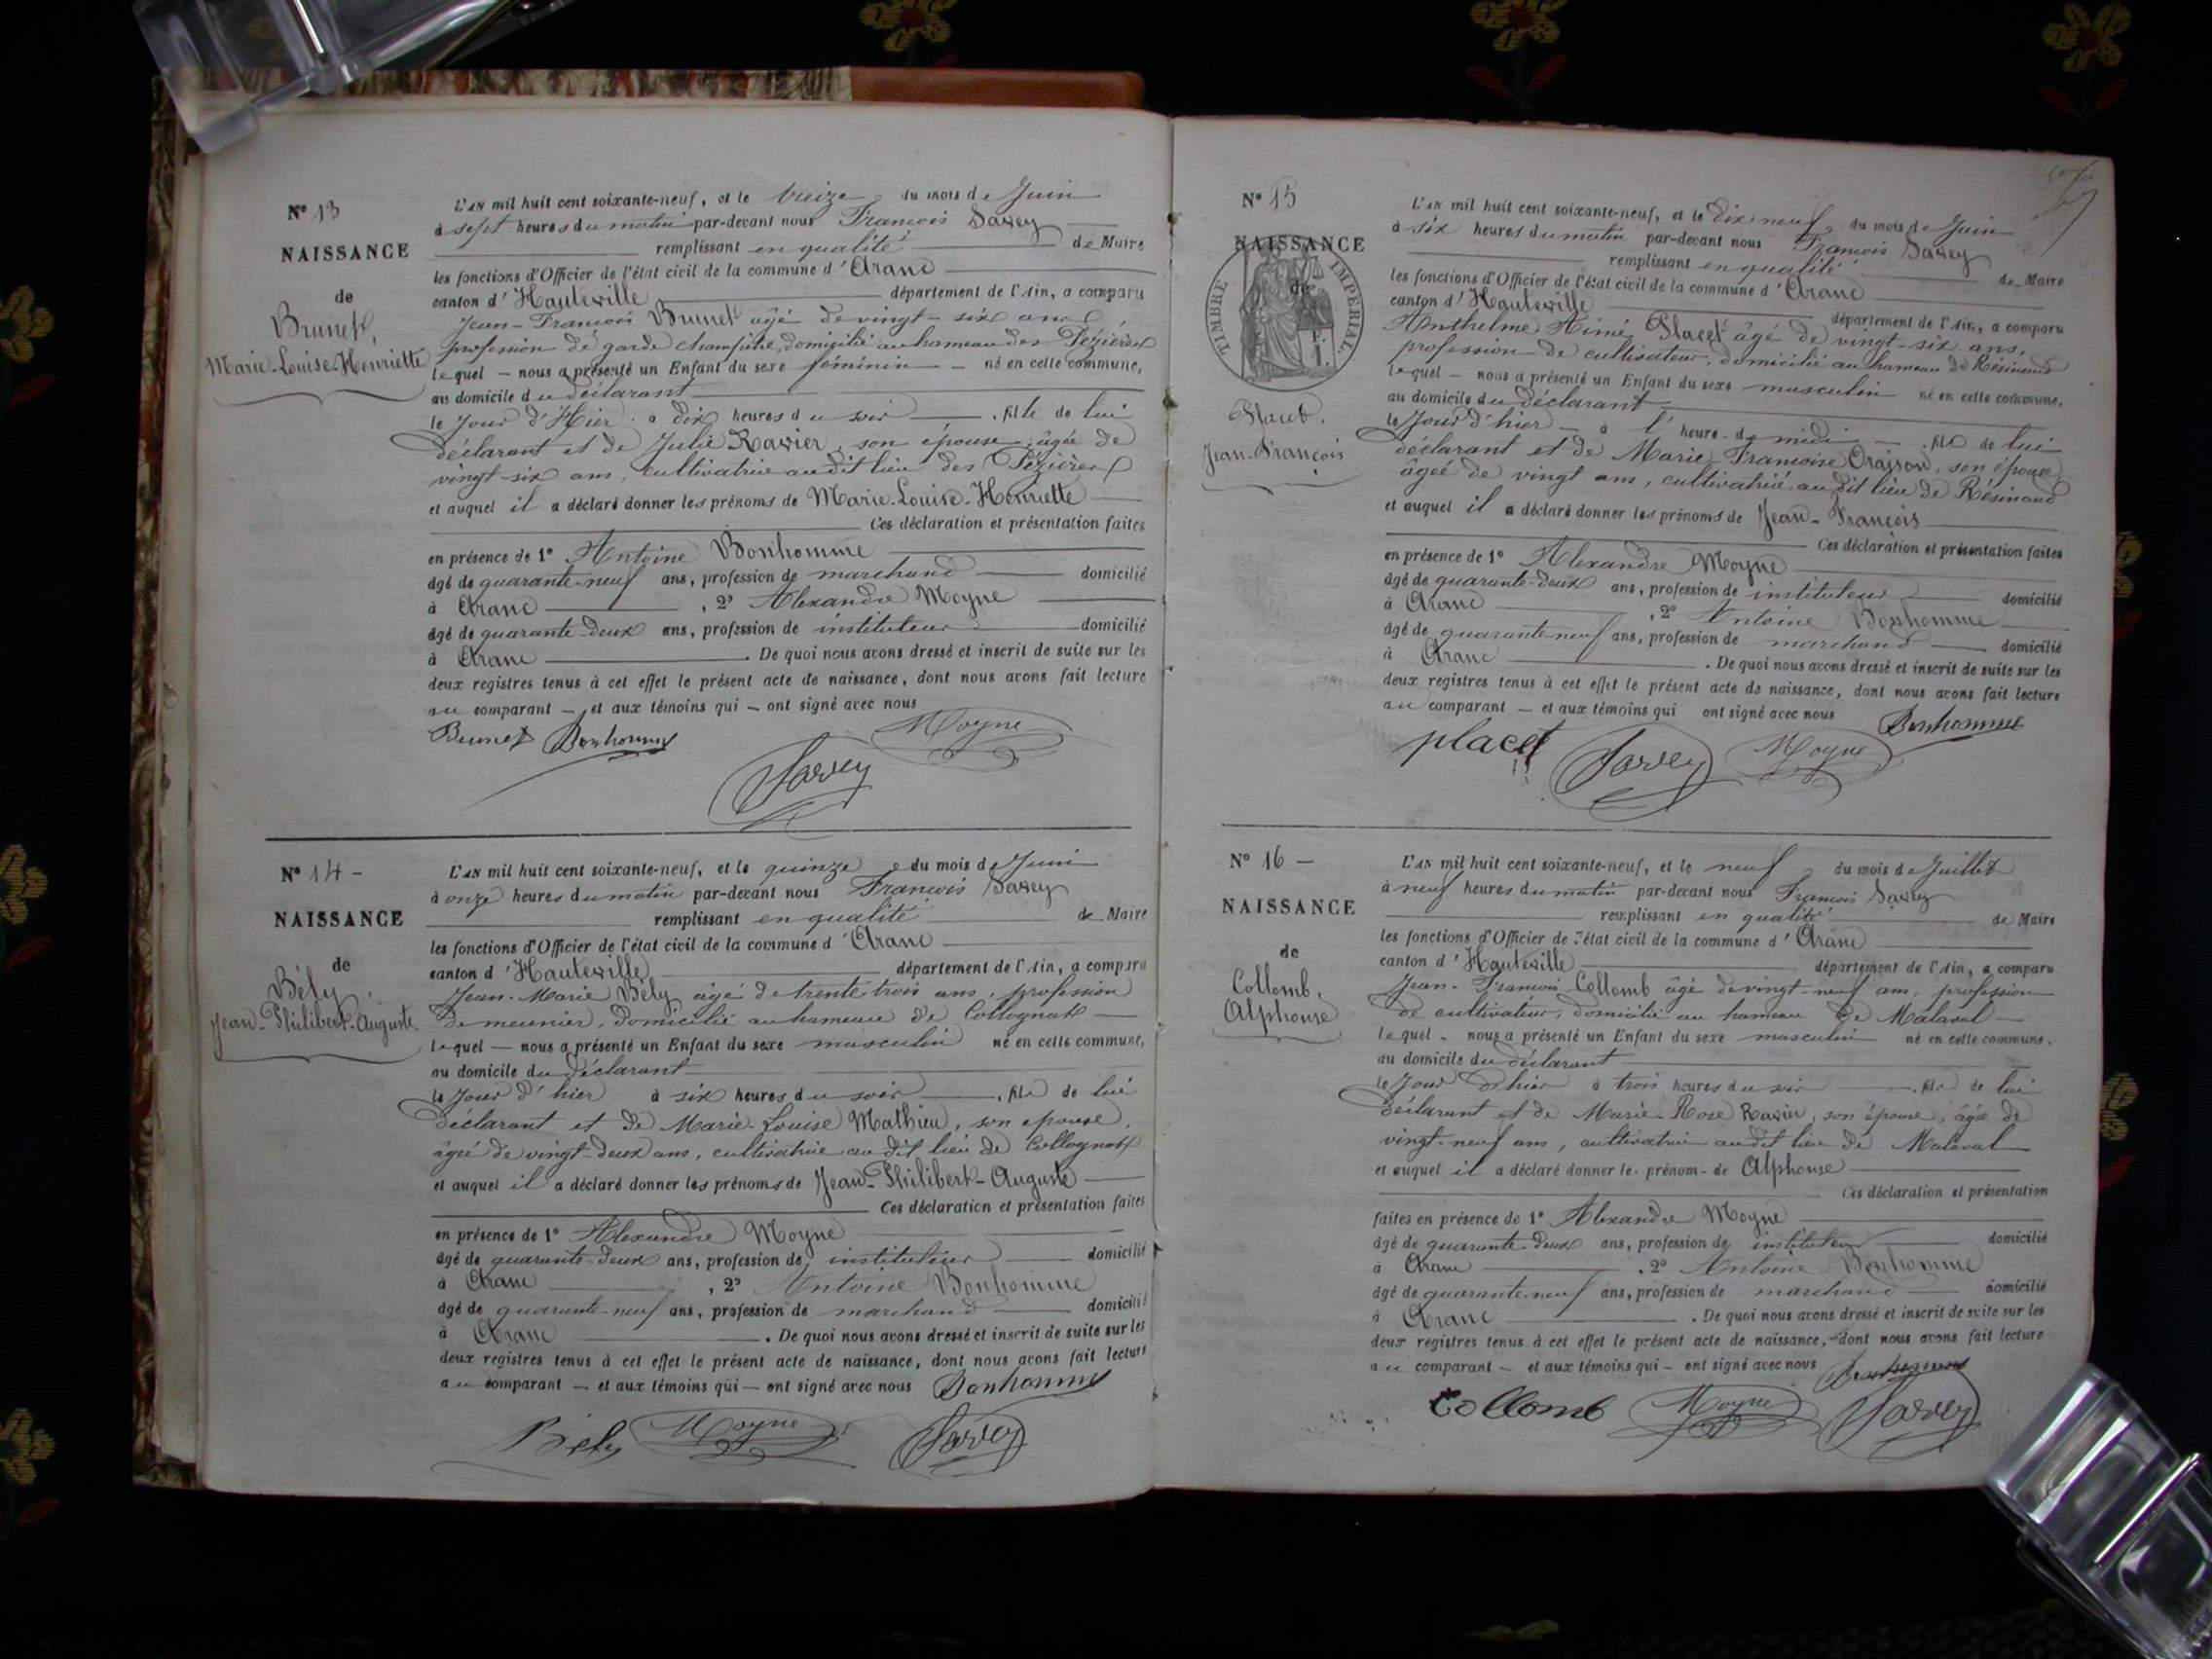 N° 13
NAISSANCE
de
Brunet,
Marie-Louise-Henriette
L'AN mil huit cent soixante-neuf, et le treize du mois de Juin
à sept heures du matin par-devant nous François Savey
remplissant en qualité de Maire
les fonctions d'Officier de l'état civil de la commune d'Aranc
canton d'Hauteville département de l'Ain, a comparu
Jean-François Brunet âgé de vingt-six ans,
profession de garde champêtre, domicilié au hameau des Pézières
lequel — nous a présenté un Enfant du sexe féminin — né en cette commune,
au domicile du déclarant
le Jour d'Hier à dix heures du soir, fille de lui
déclarant et de Julie Ravier, son épouse, âgée de
vingt-six ans, cultivatrice audit lieu des Pézières
et auquel il a déclaré donner les prénoms de Marie-Louise-Henriette
Ces déclaration et présentation faites
en présence de 1° Antoine Bonhomme
âgé de quarante-neuf ans, profession de marchand domicilié
à Aranc, 2° Alexandre Moyne
âgé de quarante-deux ans, profession de instituteur domicilié
à Aranc. De quoi nous avons dressé et inscrit de suite sur les
deux registres tenus à cet effet le présent acte de naissance, dont nous avons fait lecture
au comparant — et aux témoins qui — ont signé avec nous
Brunet Bonhomme Moyne
Savey
N° 14 -
NAISSANCE
de
Bély,
Jean-Philibert-Auguste
L'AN mil huit cent soixante-neuf, et le quinze du mois de Juin
à onze heures du matin par-devant nous François Savey
remplissant en qualité de Maire
les fonctions d'Officier de l'état civil de la commune d'Aranc
canton d'Hauteville département de l'Ain, a comparu
Jean-Marie Bély âgé de trente-trois ans, profession
de meunier, domicilié au hameau de Collognat
lequel — nous a présenté un Enfant du sexe masculin né en cette commune,
au domicile du déclarant
le Jour d'hier à six heures du soir, fils de lui
déclarant et de Marie-Louise Mathieu, son épouse,
âgée de vingt-deux ans, cultivatrice au dit lieu de Collognat
et auquel il a déclaré donner les prénoms de Jean-Philibert-Auguste
Ces déclaration et présentation faites
en présence de 1° Alexandre Moyne
âgé de quarante-deux ans, profession de instituteur domicilié
à Aranc, 2° Antoine Bonhomme
âgé de quarante-neuf ans, profession de marchand domicilié
à Aranc. De quoi nous avons dressé et inscrit de suite sur les
deux registres tenus à cet effet le présent acte de naissance, dont nous avons fait lecture
au comparant — et aux témoins qui — ont signé avec nous Bonhomme
Bély Moyne Savey
N° 15
NAISSANCE
de
TIMBRE IMPÉRIAL.
Placet.
Jean-François
L'AN mil huit cent soixante-neuf, et le dix-neuf du mois de Juin
à six heures du matin par-devant nous François Savey
remplissant en qualité de Maire
les fonctions d'Officier de l'état civil de la commune d'Aranc
canton d'Hauteville département de l'Ain, a comparu
Anthelme Aimé Placet âgé de vingt-six ans,
profession de cultivateur, domicilié au hameau de Résinand
lequel — nous a présenté un Enfant du sexe masculin né en cette commune,
au domicile du déclarant
le Jour d'hier — à l'heure de midi — fils de lui
déclarant et de Marie Françoise Oraison, son épouse
âgée de vingt ans, cultivatrice au dit lieu de Résinand
et auquel il a déclaré donner les prénoms de Jean-François
Ces déclaration et présentation faites
en présence de 1° Alexandre Moyne
âgé de quarante-deux ans, profession de instituteur domicilié
à Aranc, 2° Antoine Bonhomme
âgé de quarante-neuf ans, profession de marchand domicilié
à Aranc. De quoi nous avons dressé et inscrit de suite sur les
deux registres tenus à cet effet le présent acte de naissance, dont nous avons fait lecture
au comparant — et aux témoins qui ont signé avec nous Bonhomme
placet Savey Moyne
N° 16 —
NAISSANCE
de
Collomb,
Alphonse
L'AN mil huit cent soixante-neuf, et le neuf du mois de Juillet
à neuf heures du matin par-devant nous François Savey
remplissant en qualité de Maire
les fonctions d'Officier de l'état civil de la commune d'Aranc
canton d'Hauteville département de l'Ain, a comparu
Jean-François Collomb âgé de vingt-neuf ans, profession
de cultivateur, domicilié au hameau de Malaval
lequel - nous a présenté un Enfant du sexe masculin né en cette commune,
au domicile du déclarant
le Jour d'hier à trois heures du soir, fils de lui
déclarant et de Marie-Rose Ravier, son épouse, âgée de
vingt-neuf ans, cultivatrice au dit lieu de Malaval
et auquel il a déclaré donner le prénom de Alphonse
Ces déclaration et présentation
faites en présence de 1° Alexandre Moyne
âgé de quarante-deux ans, profession de instituteur domicilié
à Aranc, 2° Antoine Bonhomme
âgé de quarante-neuf ans, profession de marchand domicilié
à Aranc. De quoi nous avons dressé et inscrit de suite sur les
deux registres tenus à cet effet le présent acte de naissance, dont nous avons fait lecture
au comparant — et aux témoins qui — ont signé avec nous Bonhomme
Collomb Moyne Savey